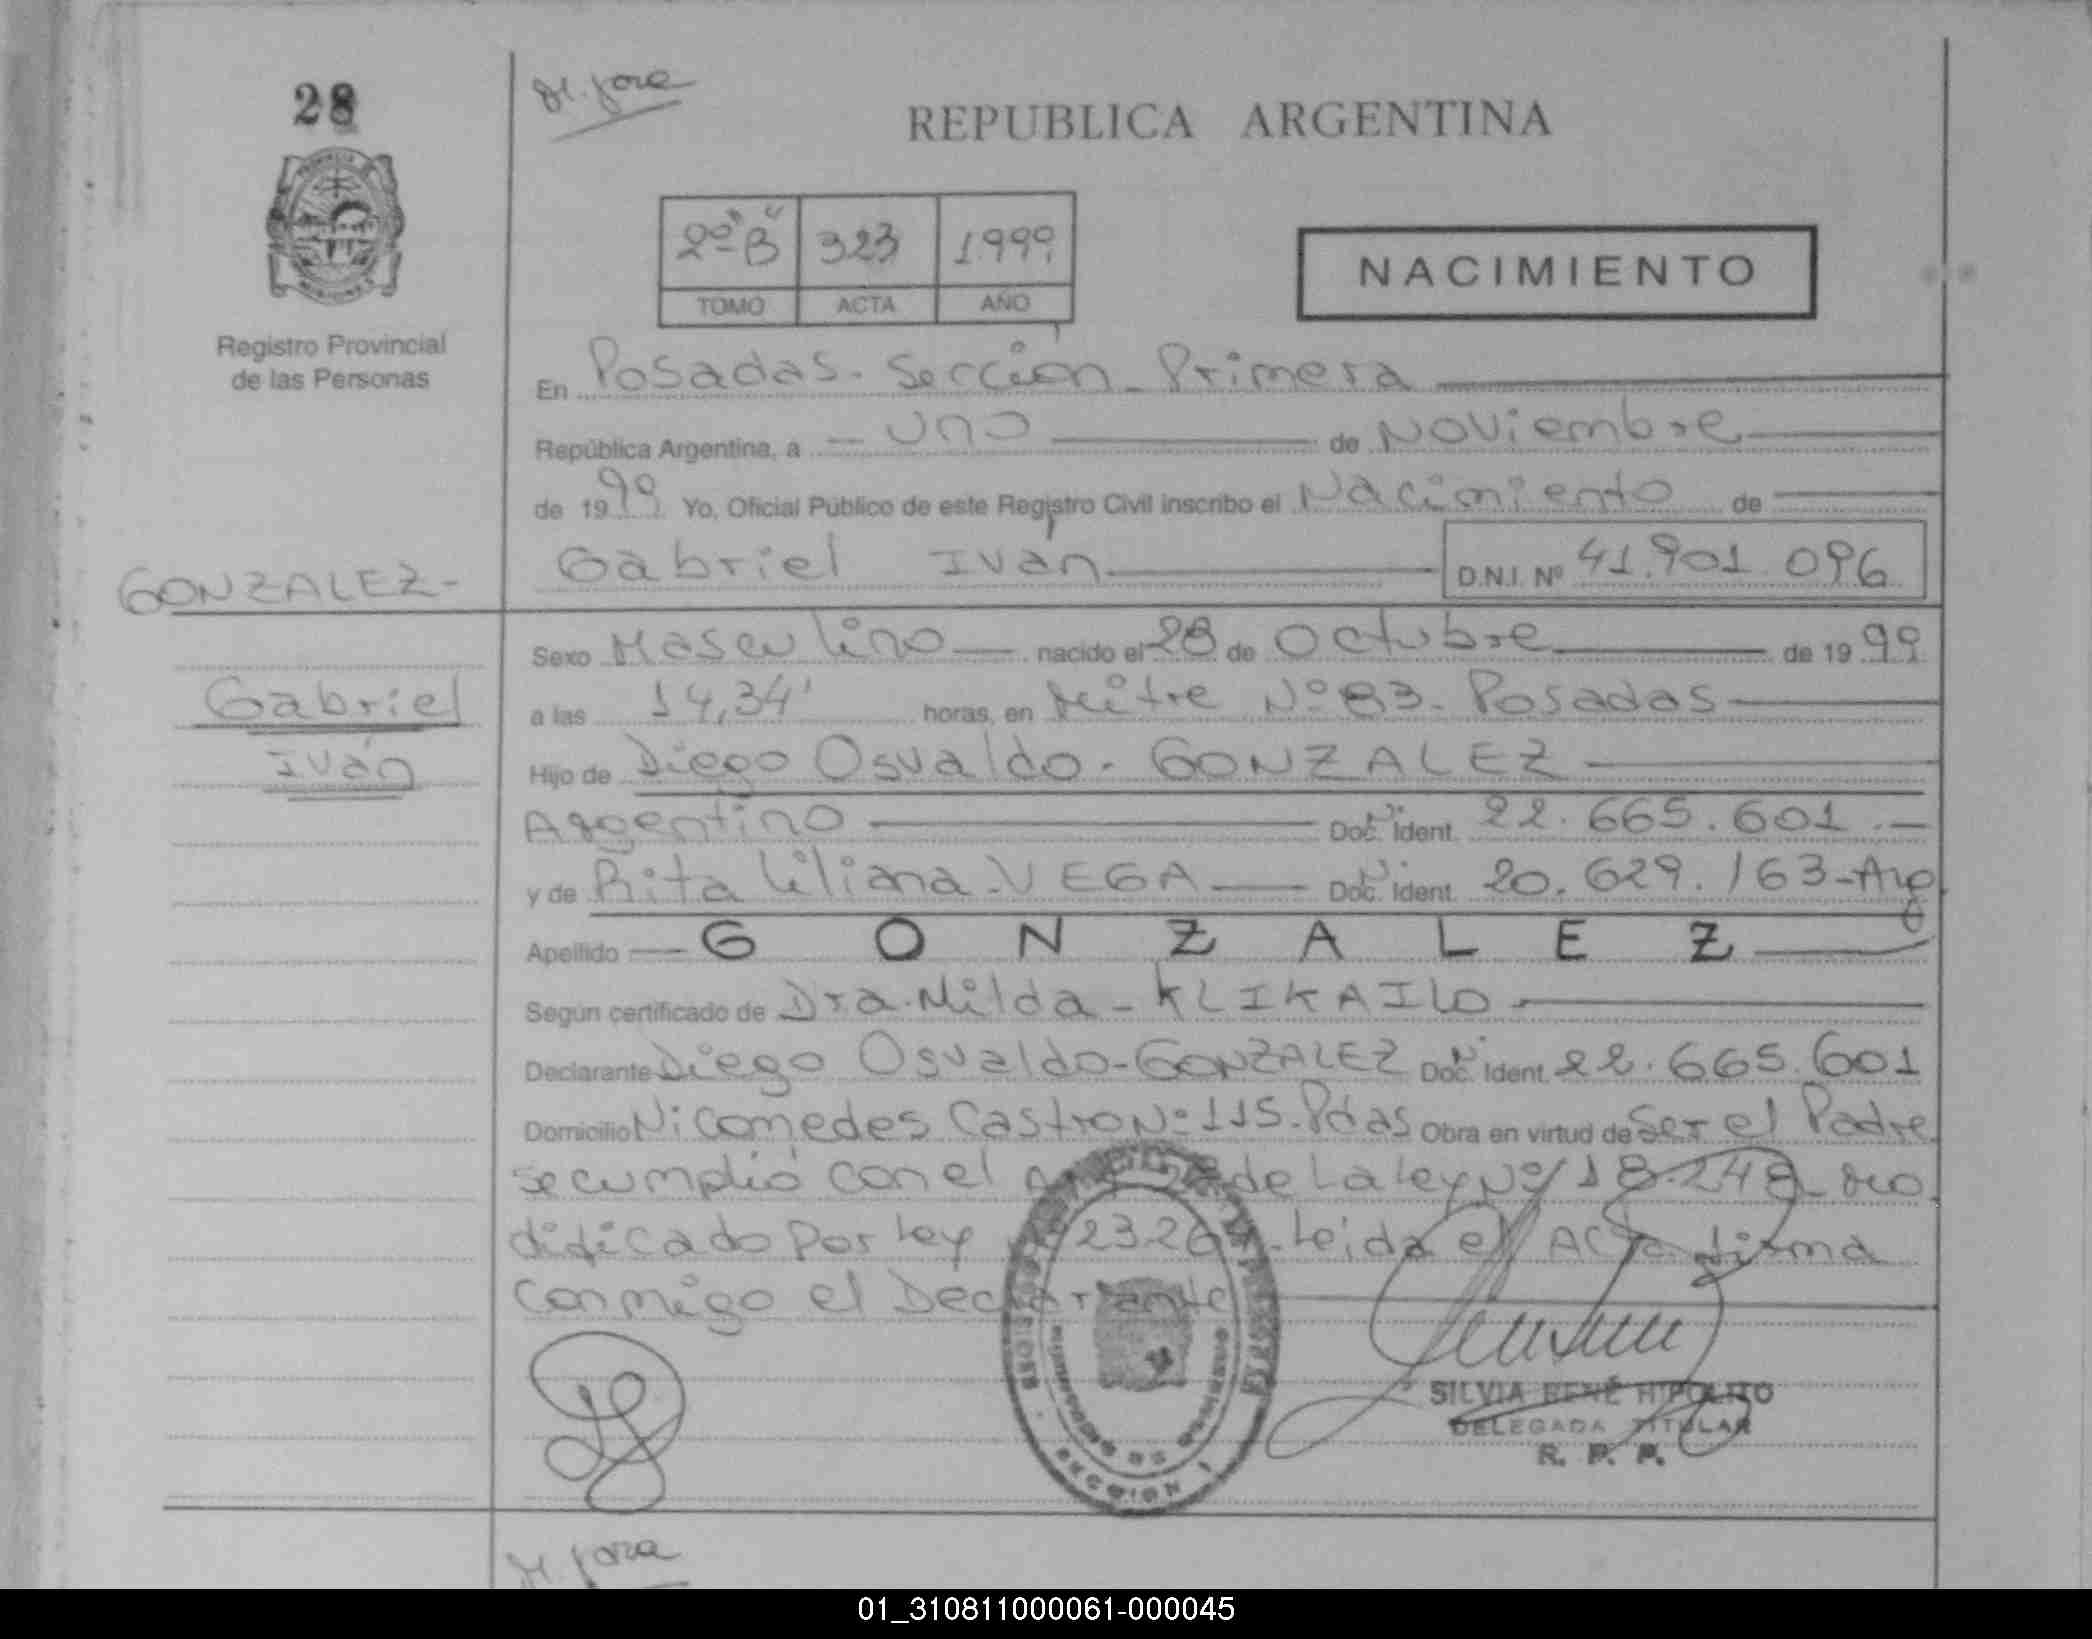 28
M. Jose
REPUBLICA ARGENTINA
2º "B" 323 1999
TOMO ACTA AÑO
NACIMIENTO
Registro Provincial
de las Personas
En Posadas. Sección Primera
República Argentina, a uno de Noviembre
de 1999 Yo, Oficial Público de este Registro Civil inscribo el Nacimiento de
GONZALEZ- Gabriel Iván D.N.I. Nº 41.901.096
Sexo Masculino nacido el 28 de Octubre de 1999
Gabriel a las 14,34' horas, en Mitre Nº 83. Posadas
Iván Hijo de Diego Osvaldo. GONZALEZ
Argentino Doc. Nº Ident. 22.665.601.-
y de Rita Liliana. VEGA Doc. Nº Ident. 20.629.163-Arg
Apellido GONZALEZ
Según certificado de Dra. Milda - KLIKAILO
Declarante Diego Osvaldo-GONZALEZ Doc. Nº Ident. 22.665.601
Domicilio Nicomedes Castro Nº 115. Pdas Obra en virtud de Ser el Padre
se cumplió con el de La ley Nº 18.248 mo
dificado Por Ley 23264. Leida el Acta firma
conmigo el Declarante
SILVIA RENÉ HIPOLITO
DELEGADA TITULAR
R. P. P.
SECCION 1
01_310811000061-000045